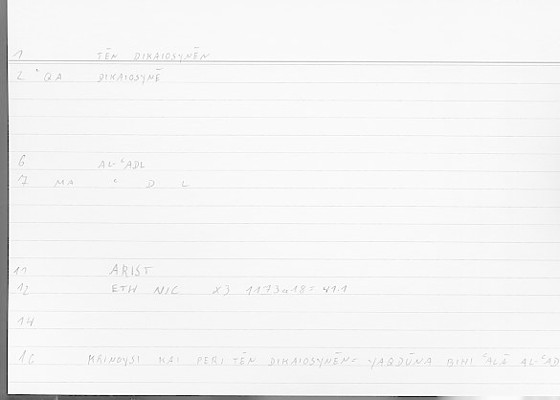 1 TĒN DIKAIOSYNĒN
2 °QA DIKAIOSYNĒ
6 AL-ʿADL
7 MA ʿ D L
11 ARIST
12 ETH NIC X3 1173a18 = 41.1
14
16 KRINOYSI KAI PERI TĒN DIKAIOSYNĒN = YAQDŪNA BIHI ʿALĀ AL-ʿAD